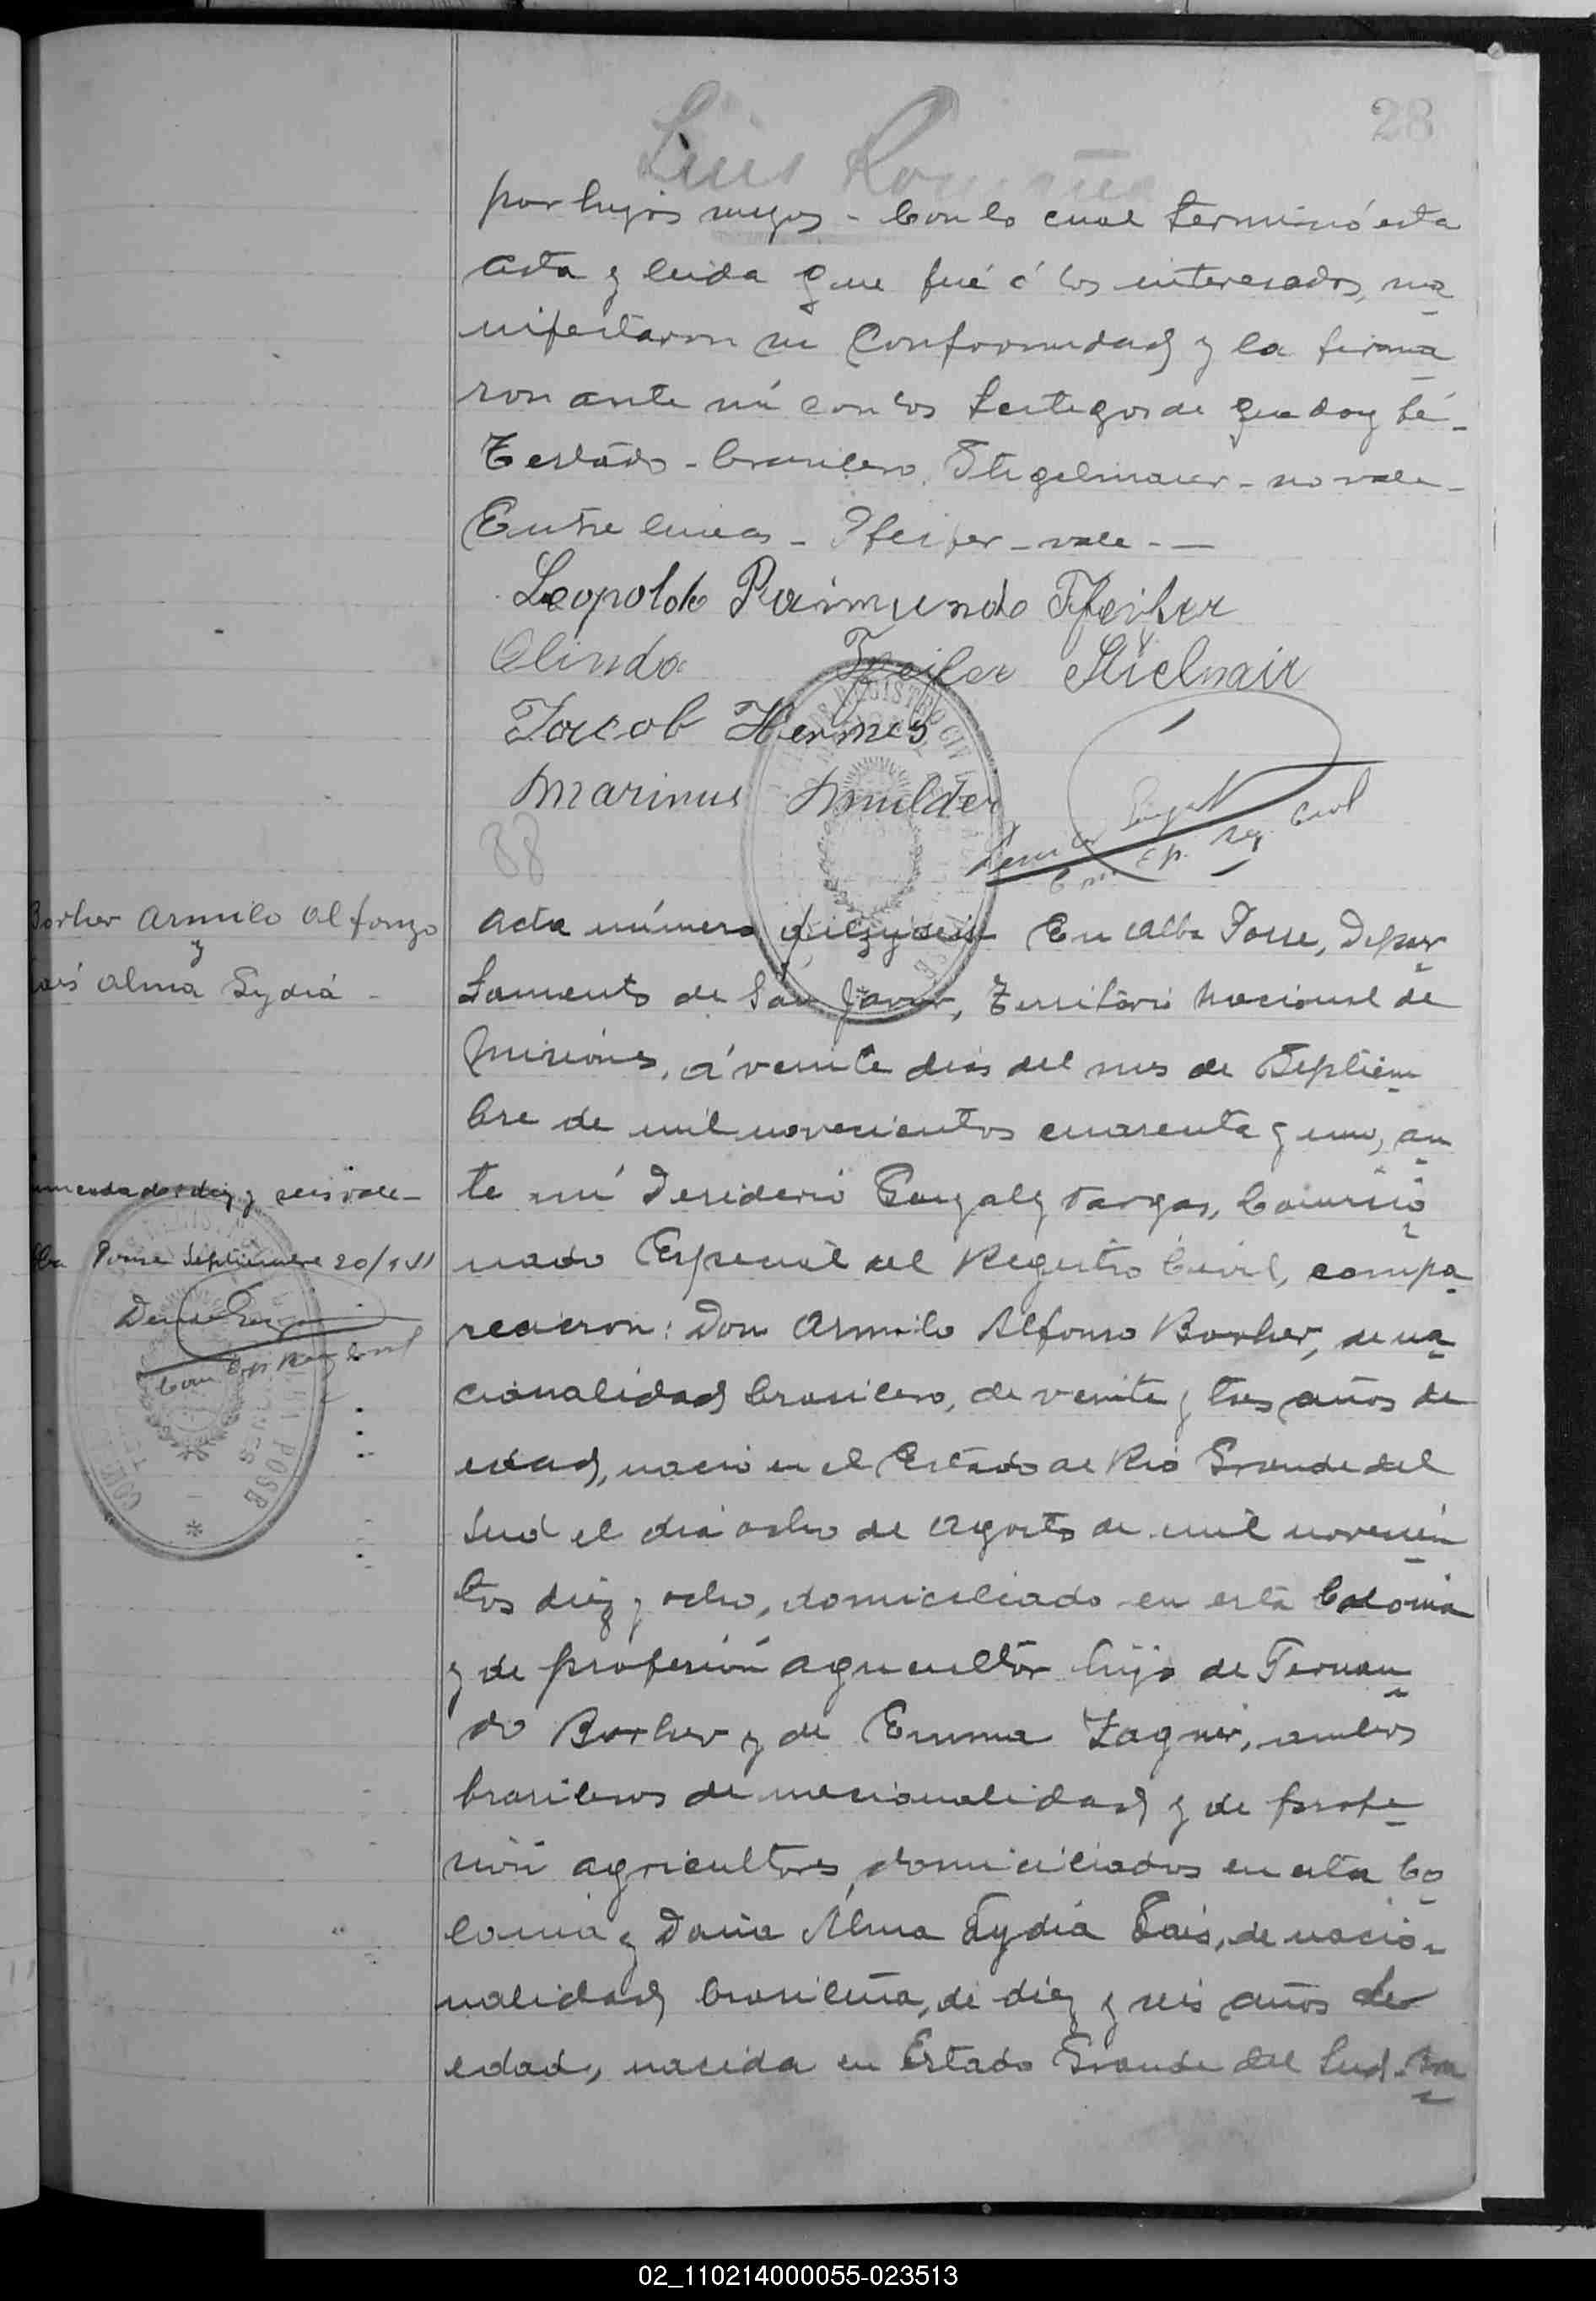 28
Luis
por hijos suyos - Con lo cual terminó esta
acta y leida que fué á los interesados, ma
nifestaron su Conformidad y la firma
ron ante mi con los testigos de que doy fé -
Testado - brasilero, Stigelmaier - no vale -
Entre lineas - Pfeifer - vale - —
Leopoldo Raimundo Pfeifer
Olinda Pfeifer
Jacob Hermes
Marinus Mulder
Reg. Civil
88
Borher Armilo Alfonzo
y
Alma Lydia -
Acta número diez y seis En Alba Posse, Depar
tamento de San Javier, Territorio Nacional de
Misiones, á veinte dias del mes de Septiem
bre de mil novecientos cuarenta y uno, an
te mi Desiderio Gonzalez Vargas, Comisio
nado Especial del Registro Civil, compa
recieron: Don Armilo Alfonso Borher, de na
cionalidad brasilero, de veinte y tres años de
edad, nació en el Estado de Rio Grande del
Sud el dia ocho de Agosto de mil novecien
tos diez y ocho, domiciliado en esta Colonia
y de profesión agricultor hijo de Fernan
do Borher y de Emma Zagner, ambos
brasileros de nacionalidad y de profe
sión agricultores, domiciliados en esta Co
lonia y Doña Alma Lydia Gais, de nacio
nalidad brasileña, de diez y seis años de
edad, nacida en Estado Grande del Sud
enmendado: diez y seis vale -
Posse Septiembre 20/941
02_110214000055-023513